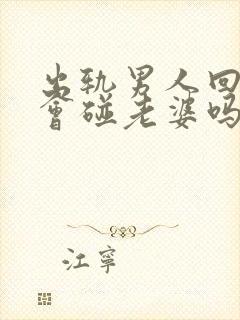 出轨男人回
会碰老婆吗
江寧